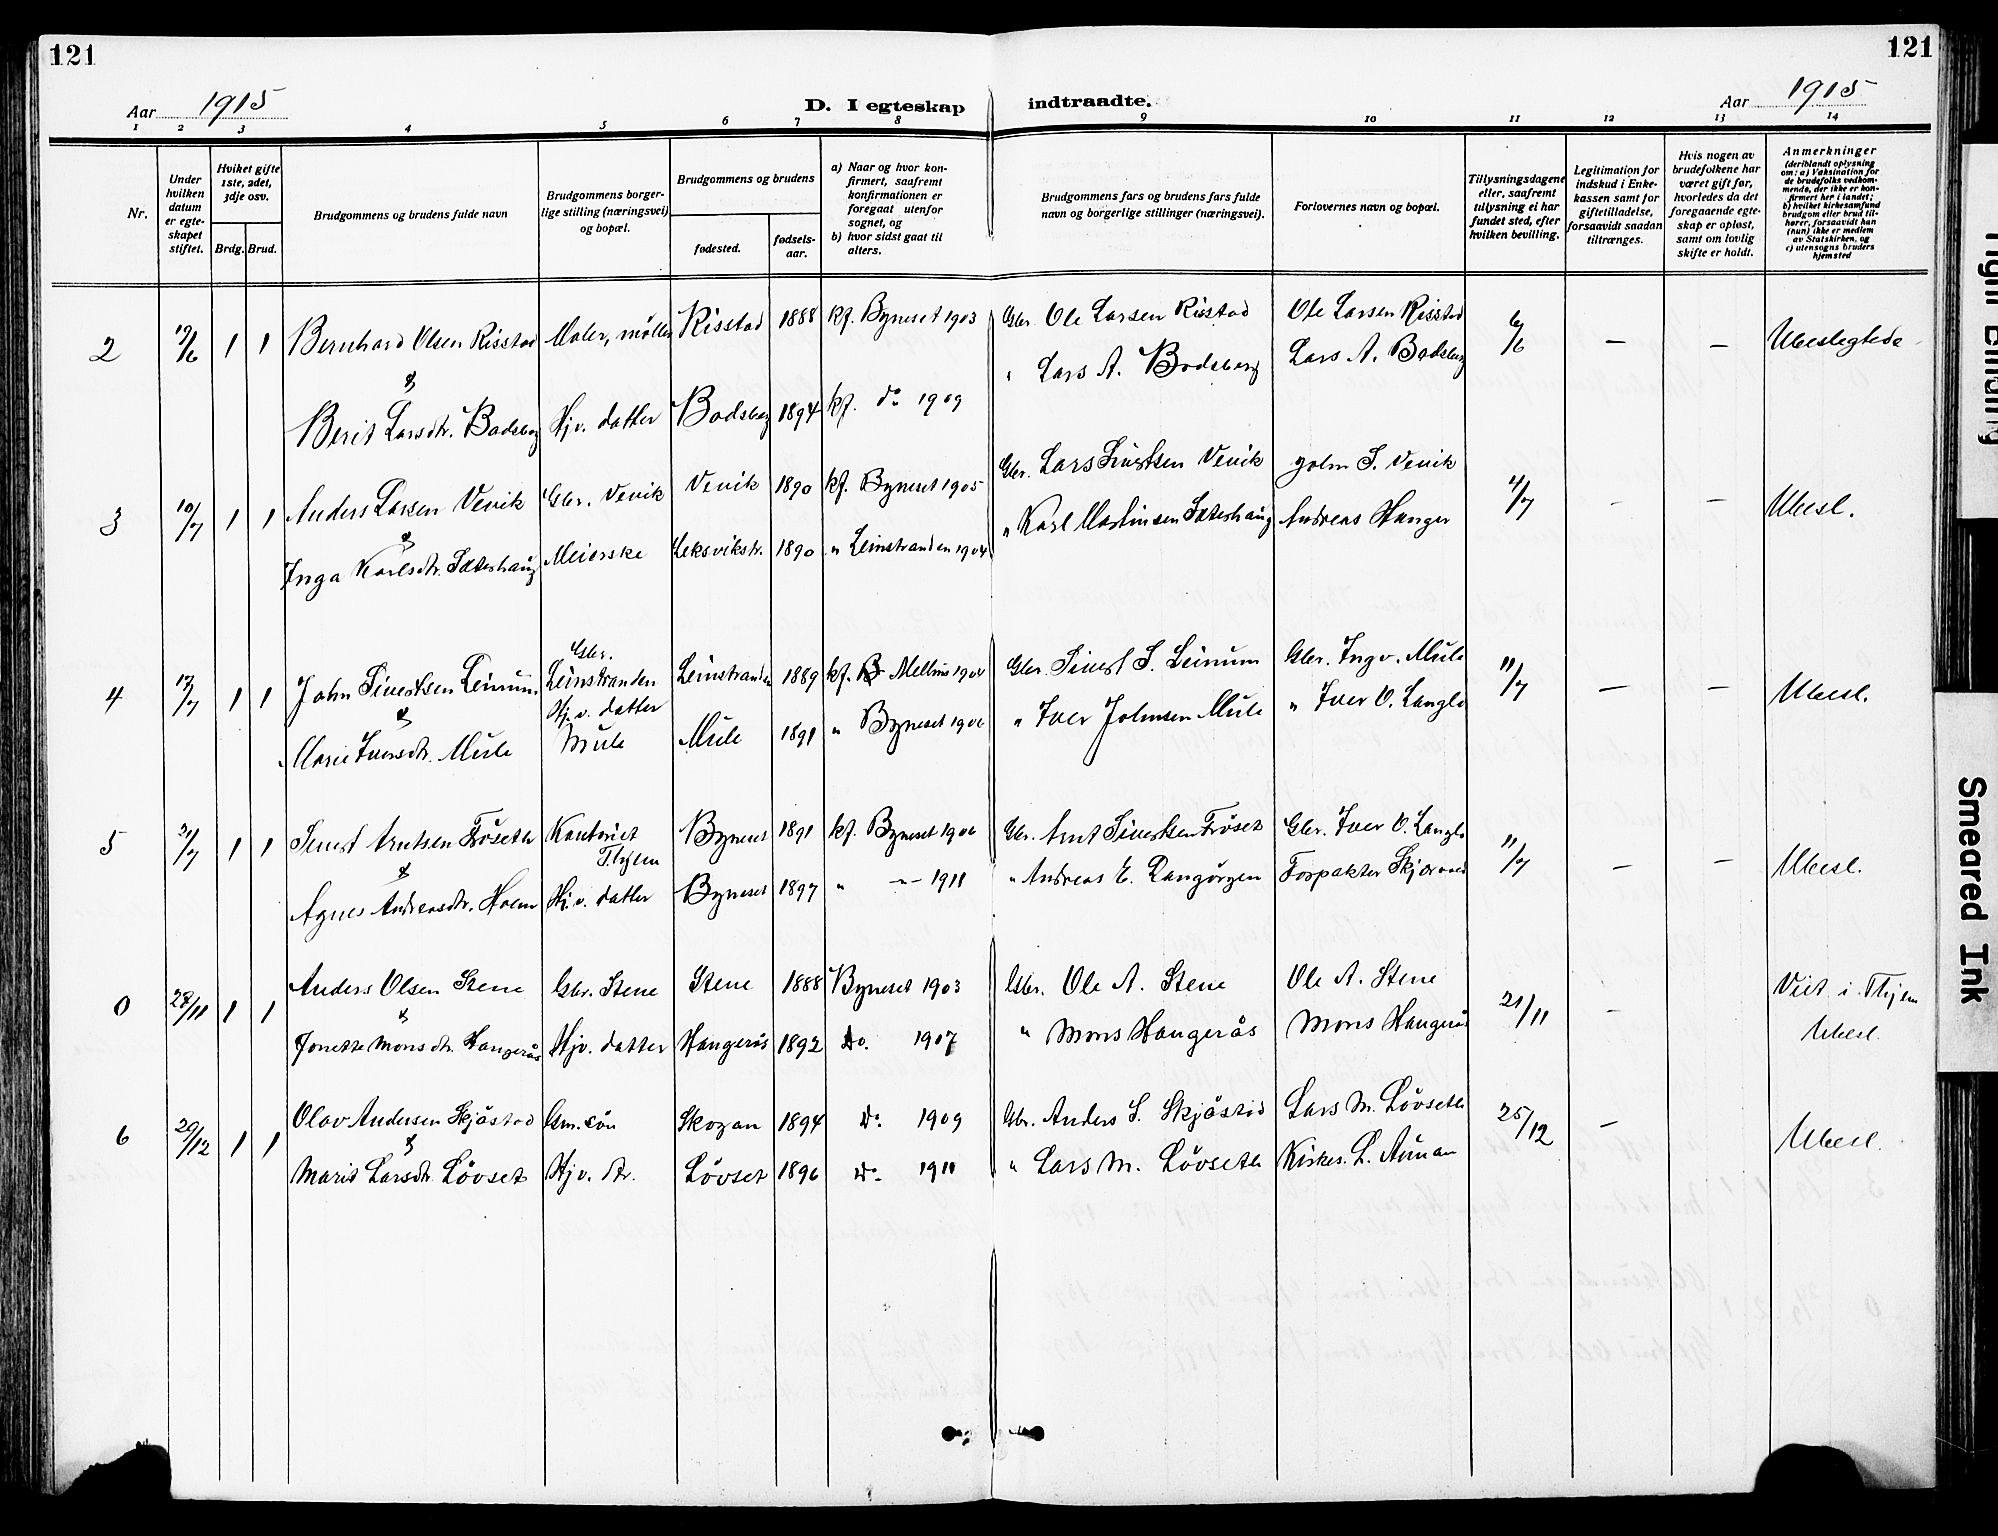 121
121
Aar 1915
D. I egteskap
indtraadte.
Aar 1915
1 2 3 4 5 6 7 8 9 10 11 12 13 14
Nr.
Under hvilken datum er egteskapet stiftet.
Hviket gifte 1ste, 2det, 3dje osv.
Brdg. Brud.
Brudgommens og brudens fulde navn
Brudgommens borgerlige stilling (næringsvei) og bopæl.
Brudgommens og brudens
fødested.
fødselsaar.
a) Naar og hvor konfirmert, saafremt konfirmationen er foregaat utenfor sognet, og
b) hvor sidst gaat til alters.
Brudgommens fars og brudens fars fulde navn og borgerlige stillinger (næringsvei).
Forlovernes navn og bopæl.
Tillysningsdagene eller, saafremt tillysning ei har fundet sted, efter hvilken bevilling.
Legitimation for indskud i Enkekassen samt for giftetilladelse, forsaavidt saadan tiltrænges.
Hvis nogen av brudefolkene har været gift før, hvorledes da det foregaaende egteskap er opløst, samt om lovlig skifte er holdt.
Anmerkninger
(deriblandt oplysning om: a) Vaksination for de brudefolks vedkommende, der ikke er konfirmert her i landet; b) hvilket kirkesamfund brudgom eller brud tilhører, forsaavidt han (hun) ikke er medlem av Statskirken, og c) utensogns bruders hjemsted
2 1 1 Bernhard Olsen Risstad Maler, møller Risstad 1888 kf. Byneset 1903 Gbr. Ole Larsen Risstad Ole Larsen Risstad 6/6 — — Ubeslegtede
&
Berit Larsdtr. Bodsberg Hjv. datter Bodsberg 1894 kf. do 1909 " Lars A. Bodsberg Lars A. Bodsberg
3 10/7 1 1 Anders Larsen Venik Gbr. Venik Venik 1890 kf. Byneset 1905 Gbr. Lars Venik John S. Venik 4/7 - — Ubesl.
&
Inga Karlsdtr. Sæterhaug Meierske Leksvikstr. 1890 " Leinstranden 1904 " Karl Martinsen Sæterhaug Andreas Hanger
4 17/7 1 1 John Sivertsen Leinum Gbr. Leinstranden Leinstranden 1889 kf. Melhus Gbr. Sivert S. Leinum Gbr. Ingv. Mule 11/7 — — Ubesl.
&
Marie Iversdtr. Mule Hj.v. datter Mule Mule 1891 " Byneset 1906 " Iver Johnsen Mule " Iver O. Langlo
5 31/7 1 1 Sivert Arntsen Frøseth Thjem Byneset 1891 kf. Byneset 1906 Gbr. Arnt Sivertsen Frøset Gbr. Iver O. Langlo 11/7 — — Ubesl.
&
Agnes Andreasdtr. Holm Hj.v. datter Byneset 1897 " —"— 1911 " Andreas E. Forpakter
0 28/11 1 1 Anders Olsen Stene Gbr. Stene Stene 1888 Byneset 1903 Gbr. Ole A. Stene Ole A. Stene 21/11 - Viet i Thjem
&
Jonette Monsdtr. Hangerås Hjv. datter Hangerås 1892 Do. 1907 " Mons Hangerås Mons Hangerås Ubesl.
6 29/12 1 1 Olav Andersen Skjåstad Gm. søn Skogan 1894 Do 1909 Gbr. Anders S. Skjåstad Lars M. Løvseth 25/12 — Ubesl.
&
Marit Larsdtr. Løvset Hjv. dtr. Løvset 1896 Do 1911 " Lars M. Løvseth Kirkes. L. Aunan
Tight Binding
Smeared Ink